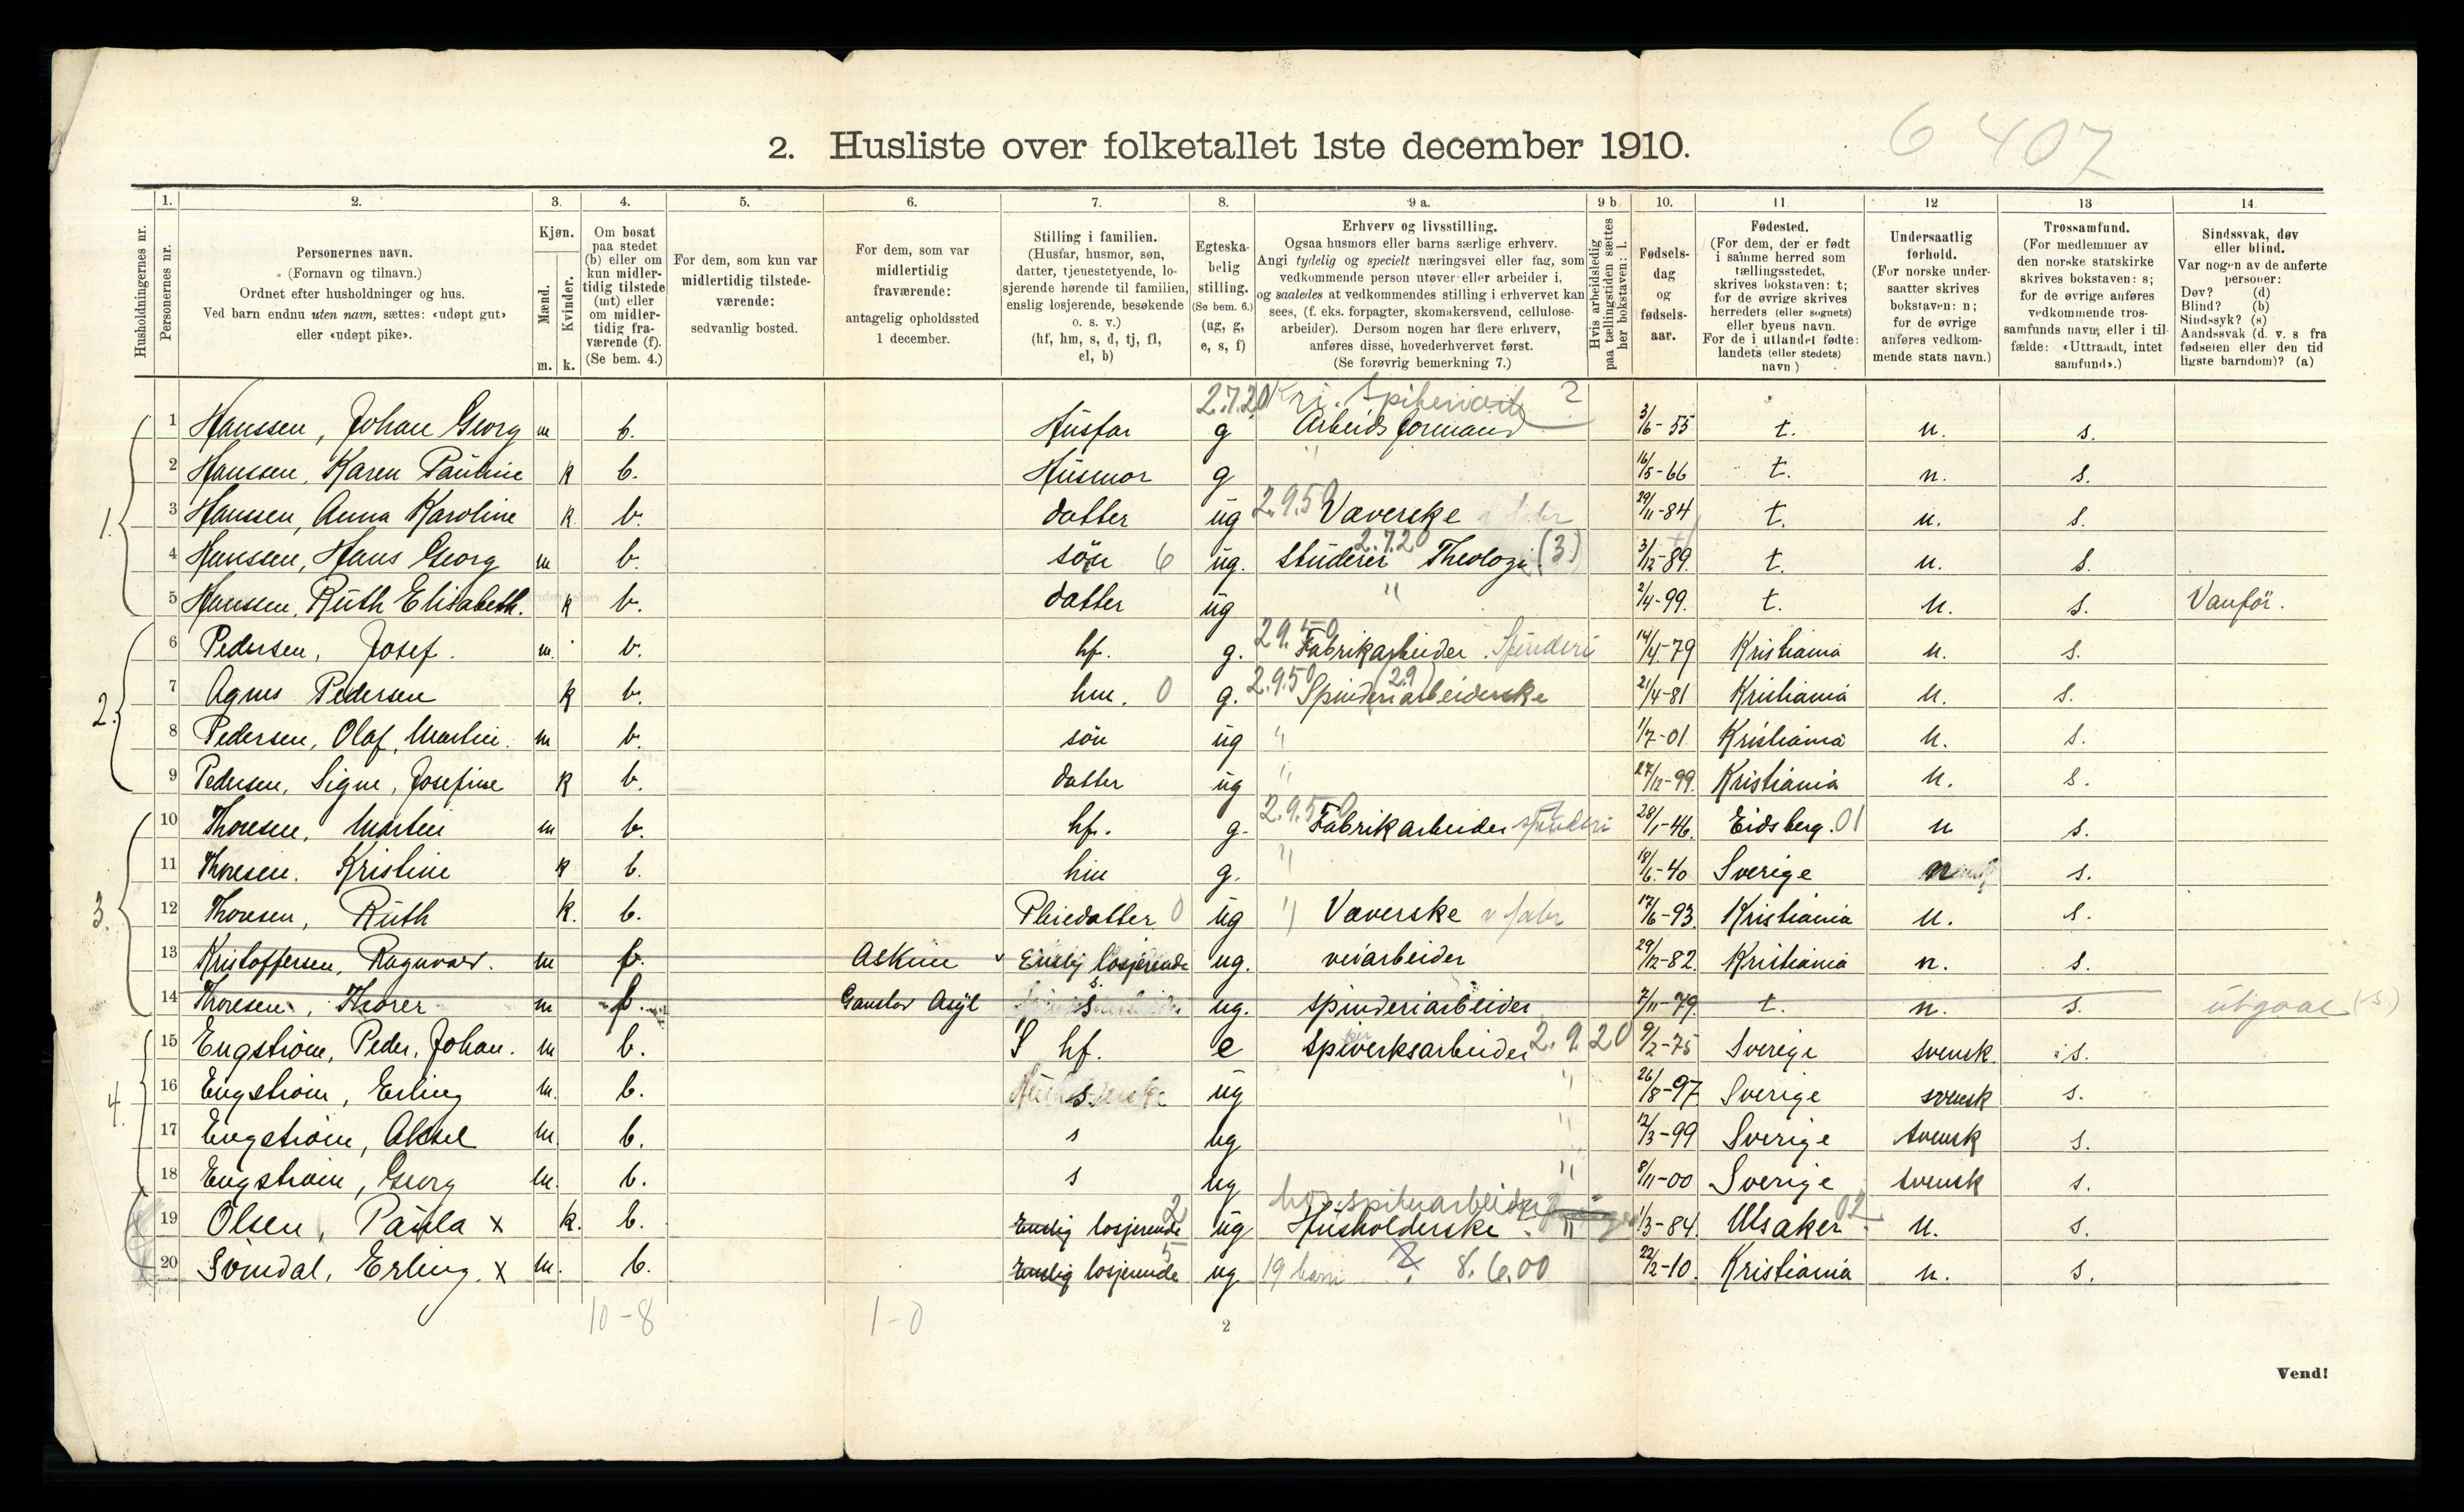 6 407
2. Husliste over folketallet 1ste december 1910.
Husholdningernes nr.
1. Personernes nr.
2. Personernes navn.
(Fornavn og tilnavn.)
Ordnet efter husholdninger og hus.
Ved barn endnu uten navn, sættes: «udøpt gut»
eller «udøpt pike».
3. Kjøn.
Mænd. m.
Kvinder. k.
4. Om bosat
paa stedet
(b) eller om
kun midler-
tidig tilstede
(mt) eller
om midler-
tidig fra-
værende (f).
(Se bem. 4.)
5. For dem, som kun var
midlertidig tilstede-
værende:
sedvanlig bosted.
6. For dem, som var
midlertidig
fraværende:
antagelig opholdssted
1 december.
7. Stilling i familien.
(Husfar, husmor, søn,
datter, tjenestetyende, lo-
sjerende hørende til familien,
enslig losjerende, besøkende
o. s. v.)
(hf, hm, s, d, tj, fl,
el, b)
8. Egteska-
belig
stilling.
(Se bem. 6.)
(ug, g,
e, s, f)
9 a. Erhverv og livsstilling.
Ogsaa husmors eller barns særlige erhverv.
Angi tydelig og specielt næringsvei eller fag, som
vedkommende person utøver eller arbeider i,
og saaledes at vedkommendes stilling i erhvervet kan
sees, (f. eks. forpagter, skomakersvend, cellulose-
arbeider). Dersom nogen har flere erhverv,
anføres disse, hovederhvervet først.
(Se forøvrig bemerkning 7.)
9 b. Hvis arbeidsledig
paa tællingstiden sættes
her bokstaven: l.
10. Fødsels-
dag
og
fødsels-
aar.
11. Fødested.
(For dem, der er født
i samme herred som
tællingsstedet,
skrives bokstaven: t;
for de øvrige skrives
herredets (eller sognets)
eller byens navn.
For de i utlandet fødte:
landets (eller stedets)
navn)
12 Undersaatlig
forhold.
(For norske under-
saatter skrives
bokstaven: n;
for de øvrige
anføres vedkom-
mende stats navn.)
13 Trossamfund.
(For medlemmer av
den norske statskirke
skrives bokstaven: s;
for de øvrige anføres
vedkommende tros-
samfunds navn, eller i til-
fælde: «Uttraadt, intet
samfund».)
14 Sindssvak, døv
eller blind.
Var nogen av de anførte
personer:
Døv? (d)
Blind? (b)
Sindssyk? (s)
Aandssvak (d. v. s fra
fødselen eller den tid
ligste barndom)? (a)
2.7.20 Kri. Spikerverk ?
1. 1 Hanssen, Johan Georg m b. Husfar g Arbeidsformand 3/6-55 t. n. s.
2 Hanssen, Karen Pauline k b. Husmor g " 16/5-66 t. n. s.
3 Hanssen, Anna Karoline k b. datter ug 2.9.50 Væverske v fabr 29/11-84 t. n. s.
4 Hanssen, Hans Georg m b. søn 6 ug. 2.7.20 studerer Theologi (3) 3/12-89. t. n. s.
5 Hanssen, Ruth Elisabeth. k b. datter ug " 2/4-99. t. n. s. Vanfør.
2. 6 Pedersen, Josef. m. b. hf. g. 2.9.50 Fabrikarbeider. Spinderi 14/4-79 Kristiania n. s.
7 Agnes Pedersen k b. hm. 0 g. 2.9.50 Spinderiarbeiderske (2.9) 21/4-81 Kristiania n. s.
8 Pedersen, Olaf, Martin. m b. søn ug " 1/7-01 Kristiania n. s.
9 Pedersen, Signe, Josefine k b. datter ug " 27/12-99. Kristiania n. s.
3. 10 Thoresen, Martin m b. hf. g. 2.9.50 Fabrikarbeider spinderi 28/1-46. Eidsberg. 01 n s.
11 Thoresen. Kristine k b. hm g. " 18/6-40 Sverige n s.
12 Thoresen, Ruth k. b. Pleiedatter 0 ug " Væverske v fabr 17/6-93. Kristiania n. s.
13 Kristoffersen, Ragnvald. m f. Askim Enslig losjerende ug. veiarbeider 29/12-82. Kristiania n. s.
14 Thoresen, Thorer m f. Gaustad Asyl s ug. spinderiarbeider 7/11-79. t. n. s. utgaar (s)
4. 15 Engstrøm, Peder, Johan. m b. hf. e spikerverksarbeider 2.9.20 9/2-75 Sverige svensk. s.
16 Engstrøm, Erling m. b. s. ug " 26/8-97 Sverige svensk s.
17 Engstrøm, Aksel m. b. s ug " 12/3-99 Sverige svensk s.
18 Engstrøm, Georg m. b. s ug " 8/11-00 Sverige svensk s.
19 Olsen, Paula x k. b. Enslig losjerende 2 ug hos spikerarbeider Husholderske 1/3-84. Ulsaker 02 n. s.
20 Svindal, Erling. x m. b. Enslig losjerende 5 ug 19 barn 8.6.00 22/2-10. Kristiania n. s.
10-8 1-0
2
Vend!